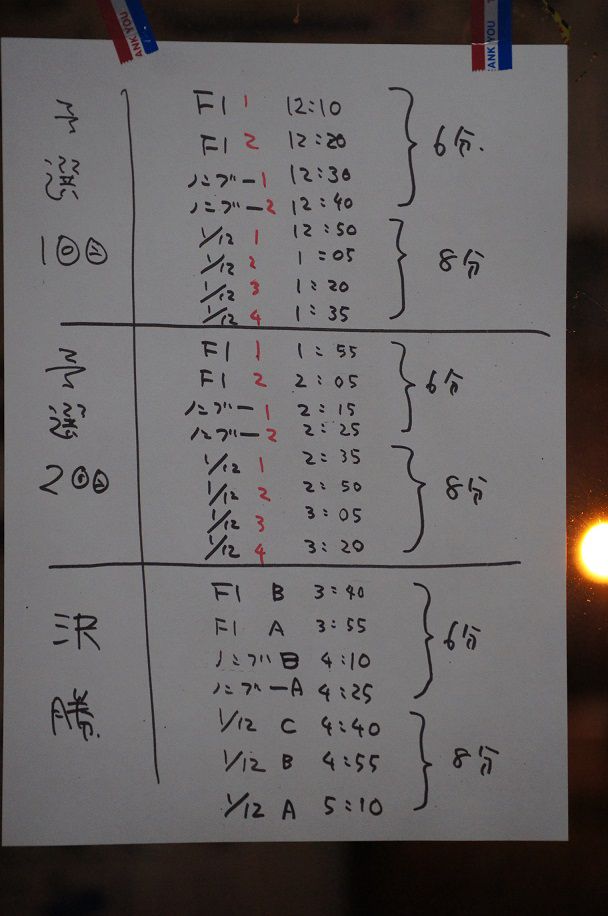 ANK YOU
ANK YOU T
予選
1回目
F1 1 12:10
F1 2 12:20
ノンブー1 12:30
ノンブー2 12:40
6分.
1/12 1 12:50
1/12 2 1:05
1/12 3 1:20
1/12 4 1:35
8分
予選
2回目
F1 1 1:55
F1 2 2:05
ノンブー1 2:15
ノンブー2 2:25
6分
1/12 1 2:35
1/12 2 2:50
1/12 3 3:05
1/12 4 3:20
8分
決勝
F1 B 3:40
F1 A 3:55
ノンブB 4:10
ノンブーA 4:25
6分
1/12 C 4:40
1/12 B 4:55
1/12 A 5:10
8分